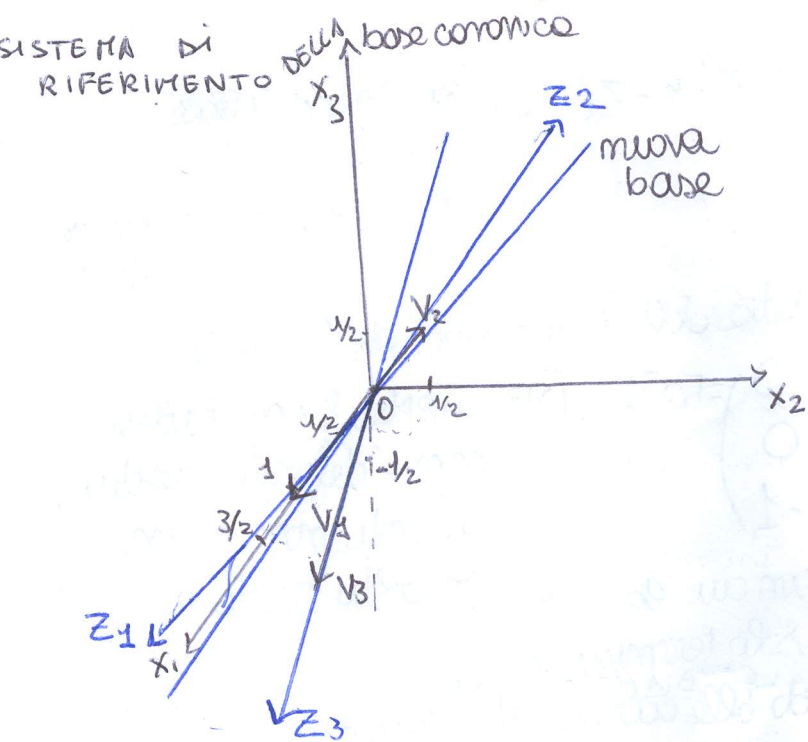 SISTEMA Di
RIFERIMENTO DELLA base canonica
X3
Z2
nuova
base
V2
1/2
0
1/2
X2
1/2
-1/2
1
V1
3/2
V3
Z1
X1
Z3